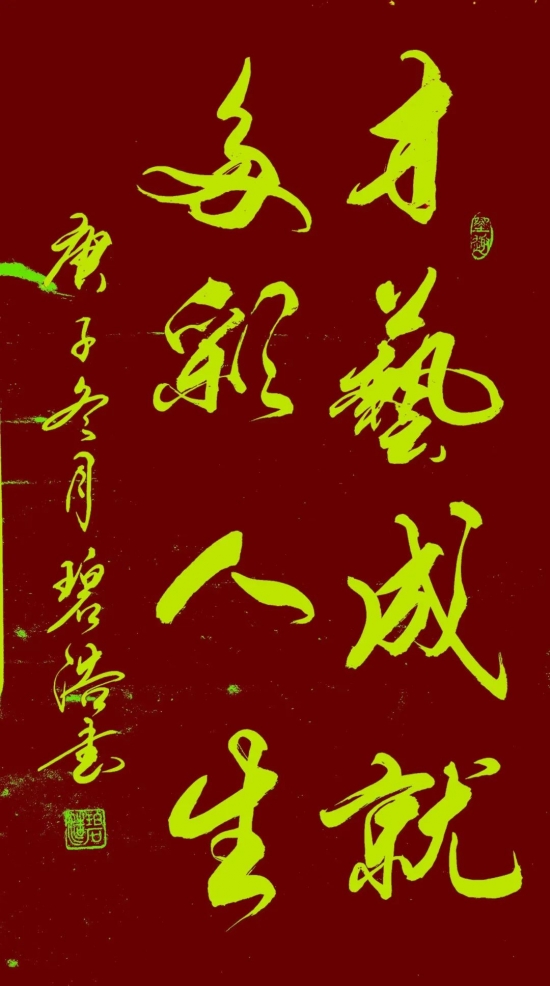 才藝成就
多彩人生
庚子冬月碧浩書